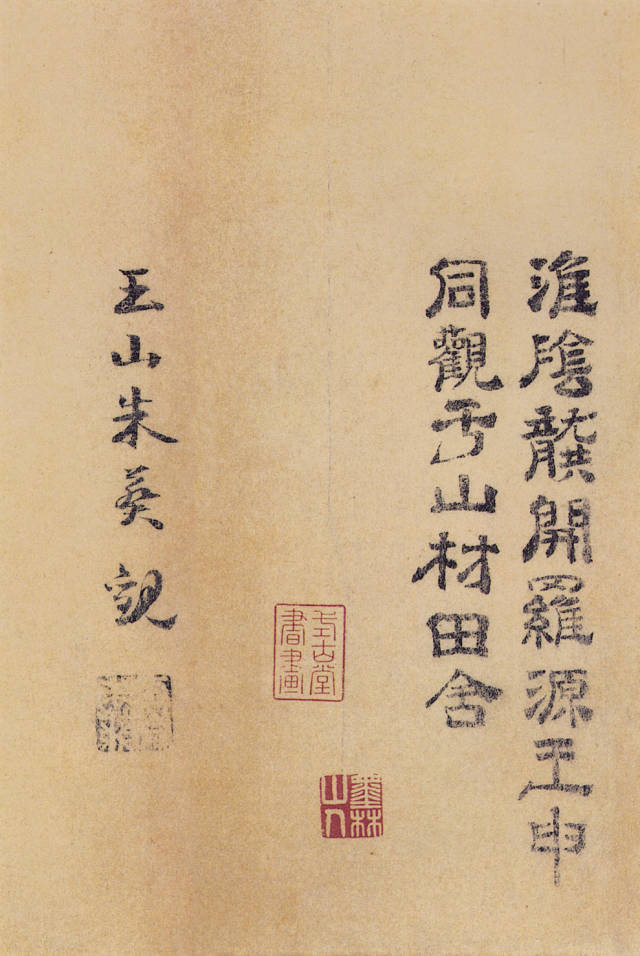 淮陰龔開羅源王申
同觀于山材田舍
墨林山人
式古堂
書畫
王山朱葵觀